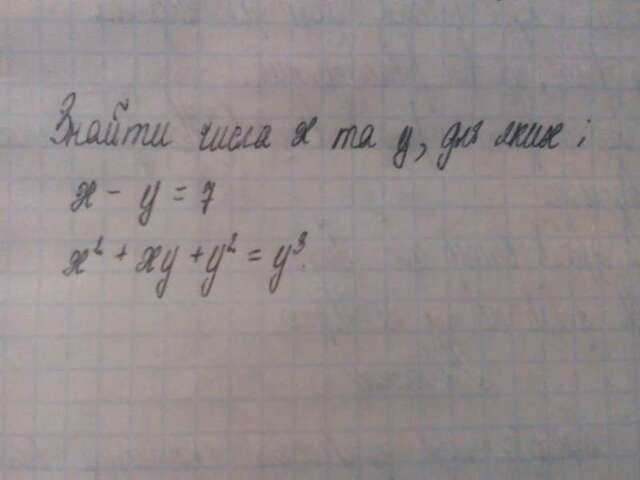 Знайти числа x та y, для яких:
x - y = 7
x² + xy + y² = y³.